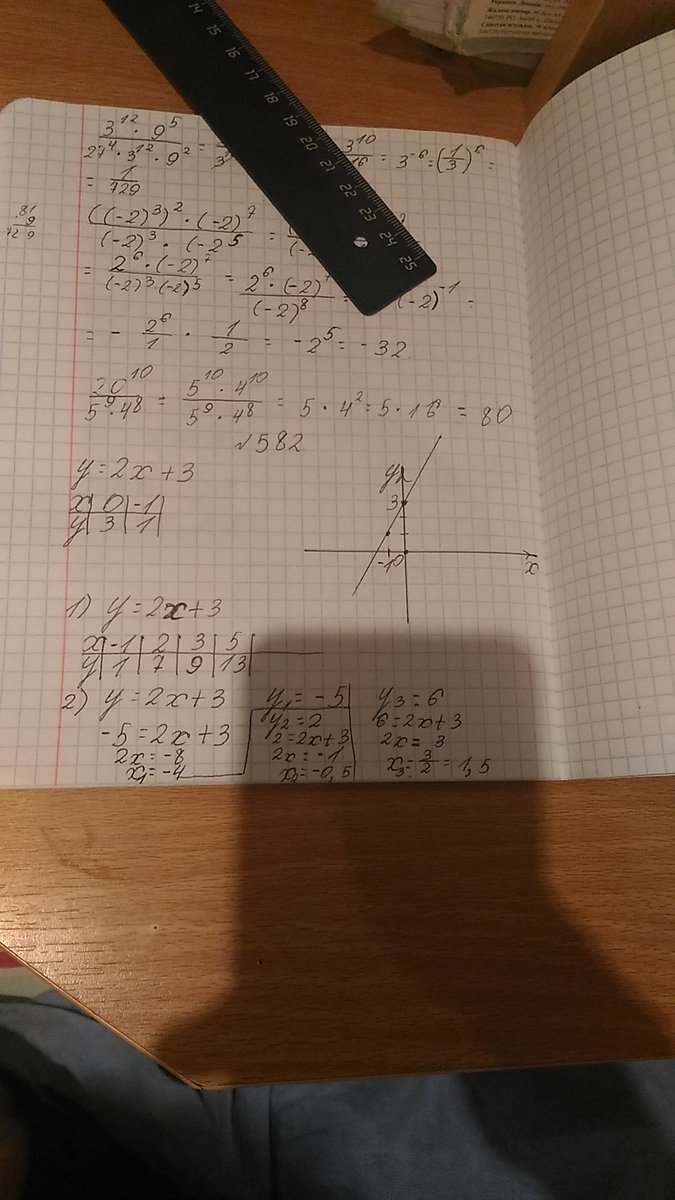 14 15 16 17 18 19 20 21 22 23 24 25
3¹² · 9⁵ / 27⁴ · 3¹² · 9² = 3¹⁰ / 16 = 3⁻⁶ = (1/3)⁶ =
= 1/729
81
9
729
((-2)³)² · (-2)⁷ / (-2)³ · (-2⁵ =
= 2⁶ · (-2)⁷ / (-2)³ · (-2)⁵ = 2⁶ · (-2)⁷ / (-2)⁸ = (-2)⁻¹ =
= - 2⁶/1 · 1/2 = -2⁵ = -32
20¹⁰ / 5⁹ · 4⁸ = 5¹⁰ · 4¹⁰ / 5⁹ · 4⁸ = 5 · 4² = 5 · 16 = 80
№582
y = 2x + 3
x | 0 | -1
y | 3 | 1
y
3
-1 0
x
1) y = 2x + 3
x | -1 | 2 | 3 | 5
y | 1 | 7 | 9 | 13
2) y = 2x + 3
-5 = 2x + 3
2x = -8
x₁ = -4
y₁ = -5
y₂ = 2
2 = 2x + 3
2x = -1
x₂ = -0,5
y₃ = 6
6 = 2x + 3
2x = 3
x₃ = 3/2 = 1,5